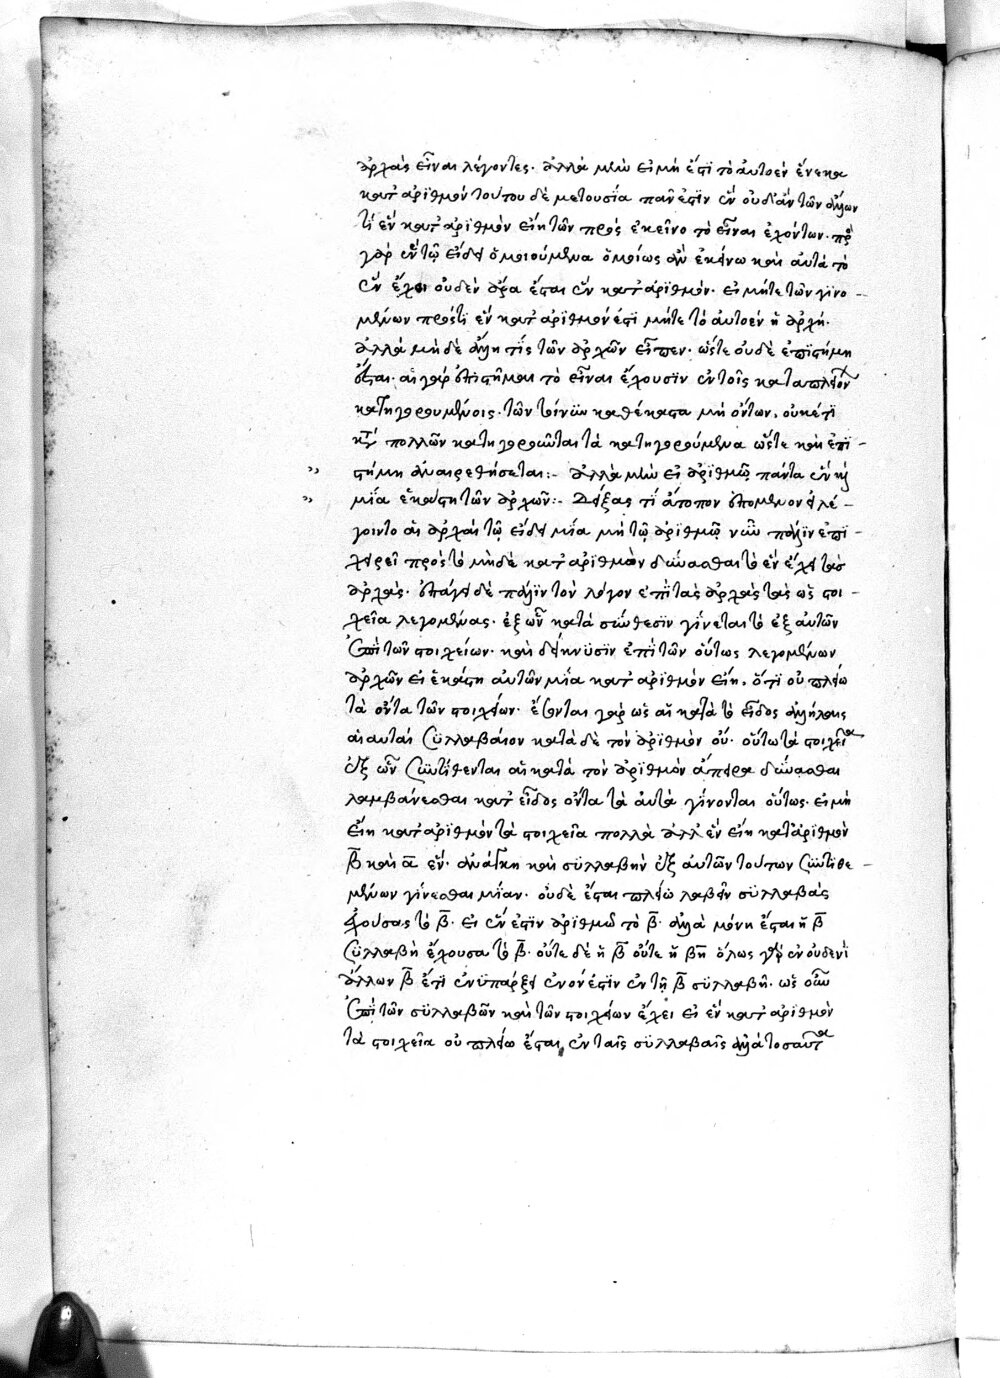 ἀρχὰς εἶναι λέγοντες. ἀλλὰ μὴν εἰ μή ἐστι τὸ αὐτοὲν ἕνεκα
κατ ἀριθμόν τούτου δὲ μετουσία πᾶν ἐστὶν ἓν οὐδ' ἂν τῶν ἄλλων
τὶ ἓν κατ ἀριθμὸν εἴη τῶν πρὸς ἐκεῖνο τὸ εἶναι ἐχόντων.
γὰρ ἓν τῷ εἴδει ὁμοιούμενα ὁμοίως ἂν ἐκείνω καὶ αὐτὰ τὸ
ἓν ἔχοι οὐδὲν ἄρα ἔσται ἓν κατ ἀριθμόν. εἰ μήτε τῶν γινο-
μένων πρός τι ἓν κατ ἀριθμόν ἐστι μήτε τὸ αὐτοὲν ἡ ἀρχή.
ἀλλὰ μὴ δὲ ἄλλη τὶς τῶν ἀρχῶν εἶπεν. ὥστε οὐδὲ ἐπιστήμη
ἔσται. αἱ γὰρ ἐπιστῆμαι τὸ εἶναι ἔχουσιν ἐν τοῖς κατὰ πλειόνων
κατηγορουμένοις. τῶν τοίνυν καθέκαστα μὴ ὄντων, οὐκέτι
κατὰ πολλῶν κατηγορεῖται τὰ κατηγορούμενα ὥστε καὶ ἐπι-
στήμη ἀναιρεθήσεται:- ἀλλὰ μὴν εἰ ἀριθμῷ πάντα ἓν καὶ
μία ἑκάστη τῶν ἀρχῶν:- Δείξας τί ἄτοπον ἑπόμενον εἰ λέ-
γοιντο αἱ ἀρχαὶ τῷ εἴδει μία μὴ τῷ ἀριθμῷ νῦν πάλιν ἐπι-
χειρεῖ πρὸς τὸ μὴ δὲ κατ ἀριθμὸν δύνασθαι τὸ ἓν ἔχειν τὰς
ἀρχάς. ὑπάγει δὲ πάλιν τὸν λόγον ἐπὶ τὰς ἀρχὰς τὰς ὡς στοι-
χεῖα λεγομένας. ἐξ ὧν κατὰ σύνθεσιν γίνεται τὸ ἐξ αὐτῶν
ἐπὶ τῶν στοιχείων. καὶ δείκνυσιν ἐπὶ τῶν οὕτως λεγομένων
ἀρχῶν εἰ ἑκάστη αὐτῶν μία κατ ἀριθμὸν εἴη. ὅτι οὐ πλείω
τὰ ὄντα τῶν στοιχείων. ἔσονται γὰρ ὡς αἱ κατὰ τὸ εἶδος ἀλλήλαις
αἱ αὐταὶ συλλαβαὶ κατὰ δὲ τὸν ἀριθμὸν οὔ. οὕτω τὰ στοιχεῖα
ἐξ ὧν συντίθενται αἱ κατὰ τὸν ἀριθμὸν ἄπειρα δύνασθαι
λαμβάνεσθαι κατ εἶδος ὄντα τὰ αὐτὰ γίνονται οὕτως. εἰ μὴ
εἴη κατ ἀριθμὸν τὰ στοιχεῖα πολλὰ ἀλλ ἓν εἴη κατ ἀριθμὸν
β̅ καὶ α̅ ἕν. ἀνάγκη καὶ συλλαβὴν ἐξ αὐτῶν τούτων συντιθε-
μένων γίνεσθαι μίαν. οὐδὲ ἔσται πλείω λαβεῖν συλλαβὰς
ἐχούσας τὸ β̅. εἰ ἕν ἐστιν ἀριθμῶ τὸ β̅. ἀλλὰ μόνη ἔσται ἡ β̅
συλλαβὴ ἔχουσα τὸ β̅. οὔτε δὲ ἡ β̅ οὔτε ἡ βη̅ ὅλως γὰρ ἐν οὐδενὶ
ἄλλων β̅ ἔτι ἐνυπάρξει ἐν ὅν ἐστιν ἐν τῇ β̅ συλλαβῇ. ὡς οὖν
ἐπὶ τῶν συλλαβῶν καὶ τῶν στοιχείων ἔχει εἰ ἓν κατ ἀριθμὸν
τὰ στοιχεῖα οὐ πλείω ἔσται ἐν ταῖς συλλαβαῖς ἀλλὰ τοσαῦτα